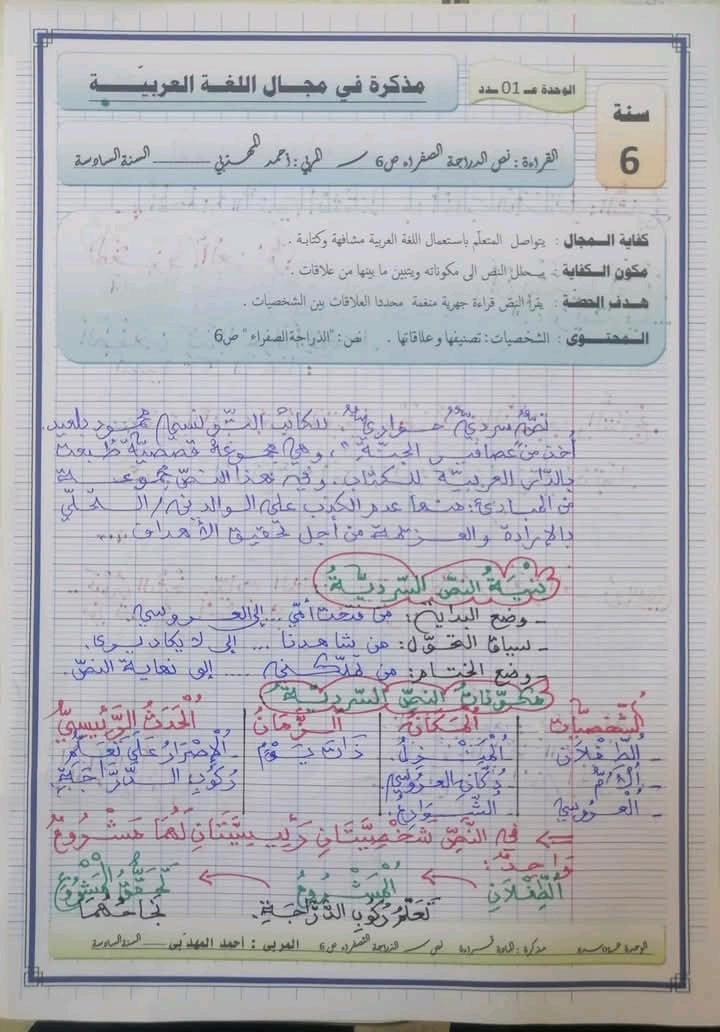 مذكرة في مجال اللغة العربيّة
الوحدة عـ 01 ـدد
سنة
6
القراءة : نص الدراجة الصفراء ص6 المربي : أحمد المهذبي السنة السادسة
كفاية المجال : يتواصل المتعلّم باستعمال اللغة العربية مشافهة وكتابة .
مكوّن الكفاية : يحلل النص الى مكوناته ويتبين ما بينها من علاقات .
هدف الحصة : يقرأ النص قراءة جهرية منغمة محددا العلاقات بين الشخصيات .
المحتوى : الشخصيات : تصنيفها وعلاقاتها . نص : "الدّراجة الصفراء" ص6
نصّ سرديّ حواريّ للكاتب التّونسي محمود بلعيد.
أخذ من "عصافير الجنّة"، وهي مجموعة قصصيّة طبعت
بالدّار العربيّة للكتاب. وفي هذا النصّ مجموعة
من المبادئ: منها عدم الكذب على الوالدين/ التّحلّي
بالإرادة والعزيمة من أجل تحقيق الأهداف ....
بنية النصّ السّرديّة:
ـ وضع البداية: من فتحت أمّي ... إلى العروسي.
ـ سياق التحوّل: من شاهدنا ... إلى لا يكاد يرى.
ـ وضع الختام: من تملّكني .... إلى نهاية النصّ.
مكوّنات النصّ السّرديّة
الشّخصيّات المكان الزّمان الحدث الرّئيسيّ
ـ الطّفلان ـ المنزل. ـ ذات يوم ـ الإصرار على تعلّم
ـ الأمّ ـ دكّان العروسي. ركوب الدّرّاجة.
ـ العروسي ـ الشّوارع.
⇐ في النّصّ شخصيّتان رئيسيّتان لهما مشروع
واحد:
الطّفلان ← المشروع ← تحقّق المشروع
تعلّم ركوب الدّرّاجة. نجاحهما
نص الدراجة الصفراء ص6 المربي : أحمد المهذبي السنة السادسة